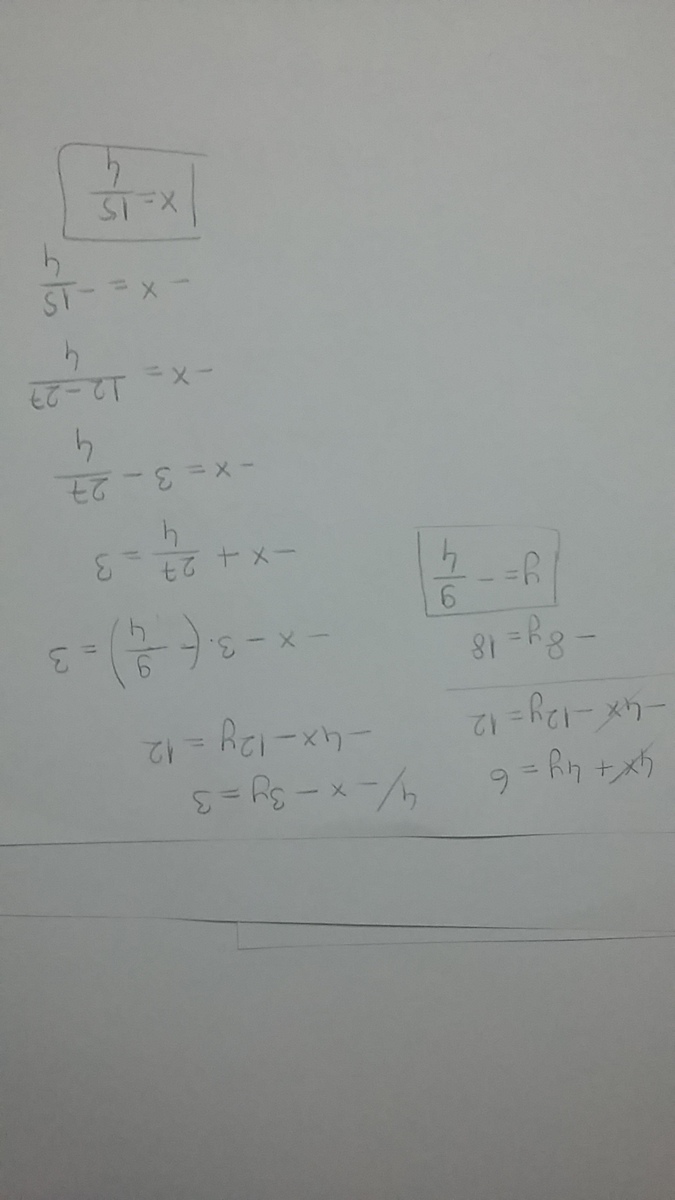 4x + 4y = 6
-4x - 12y = 12
-8y = 18
y = - 9/4
4/ -x - 3y = 3
-4x - 12y = 12
-x - 3·(- 9/4) = 3
-x + 27/4 = 3
-x = 3 - 27/4
-x = 12-27/4
-x = -15/4
x = 15/4